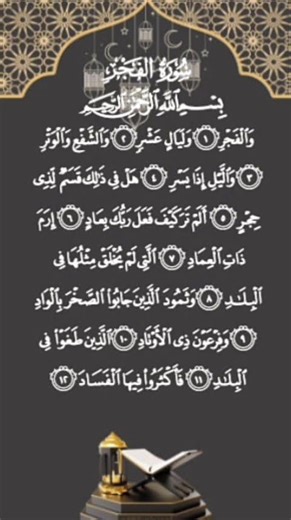 سُورَةُ الفَجْرِ
بِسْمِ اللَّهِ الرَّحْمَٰنِ الرَّحِيمِ
وَالْفَجْرِ ١ وَلَيَالٍ عَشْرٍ ٢ وَالشَّفْعِ وَالْوَتْرِ
٣ وَاللَّيْلِ إِذَا يَسْرِ ٤ هَلْ فِي ذَٰلِكَ قَسَمٌ لِّذِي
حِجْرٍ ٥ أَلَمْ تَرَ كَيْفَ فَعَلَ رَبُّكَ بِعَادٍ ٦ إِرَمَ
ذَاتِ الْعِمَادِ ٧ الَّتِي لَمْ يُخْلَقْ مِثْلُهَا فِي
الْبِلَادِ ٨ وَثَمُودَ الَّذِينَ جَابُوا الصَّخْرَ بِالْوَادِ
٩ وَفِرْعَوْنَ ذِي الْأَوْتَادِ ١٠ الَّذِينَ طَغَوْا فِي
الْبِلَادِ ١١ فَأَكْثَرُوا فِيهَا الْفَسَادَ ١٢